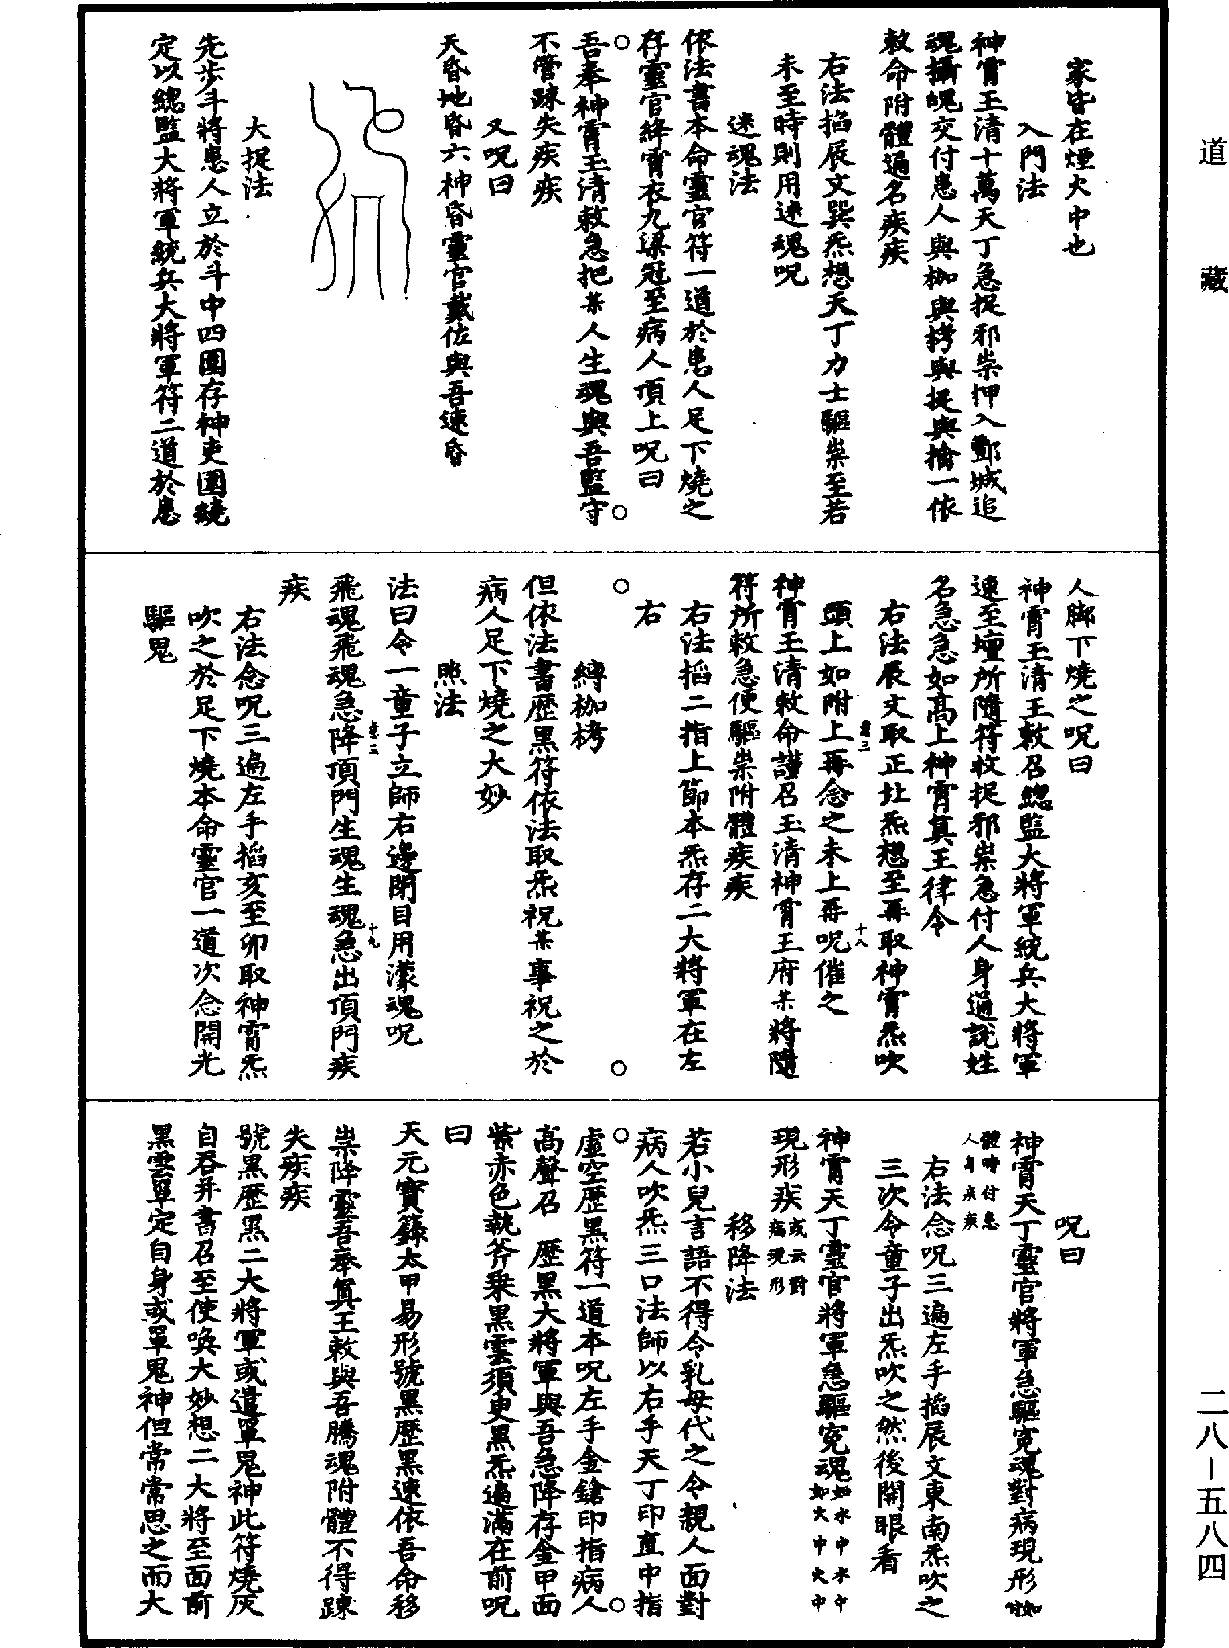 道藏
家皆在煙火中也
入門法
神霄玉清十萬天丁急捉邪祟押入酆城追
魂攝魄交付患人與枷與拷與捉與擒一依
敕命附體通名疾疾
右法掐辰文巽炁想天丁力士驅祟至若
未至時則用迷魂呪
迷魂法
依法書本命靈官符一道於患人足下燒之
存靈官絳霄衣九梁冠至病人頂上呪曰
吾奉神霄玉清敕急把某人生魂與吾監守
不管踈失疾疾
又呪曰
天昏地昏六神昏靈官戴佐與吾速昏
大捉法
先步斗將患人立於斗中四圍存神吏圍繞
定以總監大將軍統兵大將軍符二道於患
人脚下燒之呪曰
神霄玉清王敕召總監大將軍統兵大將軍
速至壇所隨符收捉邪祟急付人身通說姓
名急急如高上神霄真王律令
右法辰文取正北炁想至再取神霄炁吹
頭上如附上再念之未上再呪催之
卷三
十八
神霄玉清敕命謹召玉清神霄王府某將隨
符所敕急便驅祟附體疾疾
右法掐二指上節本炁存二大將軍在左
右
縛枷栲
但依法書歷黑符依法取炁祝某事祝之於
病人足下燒之大妙
照法
法曰令一童子立師右邊閉目用濛魂呪
飛魂飛魂急降頂門生魂生魂急出頂門疾
卷三
十九
疾
右法念呪三遍左手掐亥至卯取神霄炁
吹之於足下燒本命靈官一道次念開光
驅鬼
呪曰
神霄天丁靈官將軍急驅寃魂對病現形
體時付患
人身疾疾
右法念呪三遍左手掐辰文東南炁吹之
三次令童子出炁吹之然後開眼看
神霄天丁靈官將軍急驅寃魂如水中水中
如火中火中
現形疾或云對
病現形
移降法
若小兒言語不得令乳母代之令親人面對
病人吹炁三口法師以右手天丁印直中指
虛空歷黑符一道本呪左手金鎗印指病人
高聲召歷黑大將軍與吾急降存金甲面
紫赤色執斧乘黑雲須更黑炁遍滿在前呪
曰
天元寶籙太甲易形號黑歷黑速依吾命移
祟降靈吾奉真王敕與吾騰魂附體不得踈
失疾疾
號黑歷黑二大將軍或遣罩鬼神此符燒灰
自吞并書召至使喚大妙想二大將至面前
黑雲罩定自身或罩鬼神但常常思之而大
二八－五八四